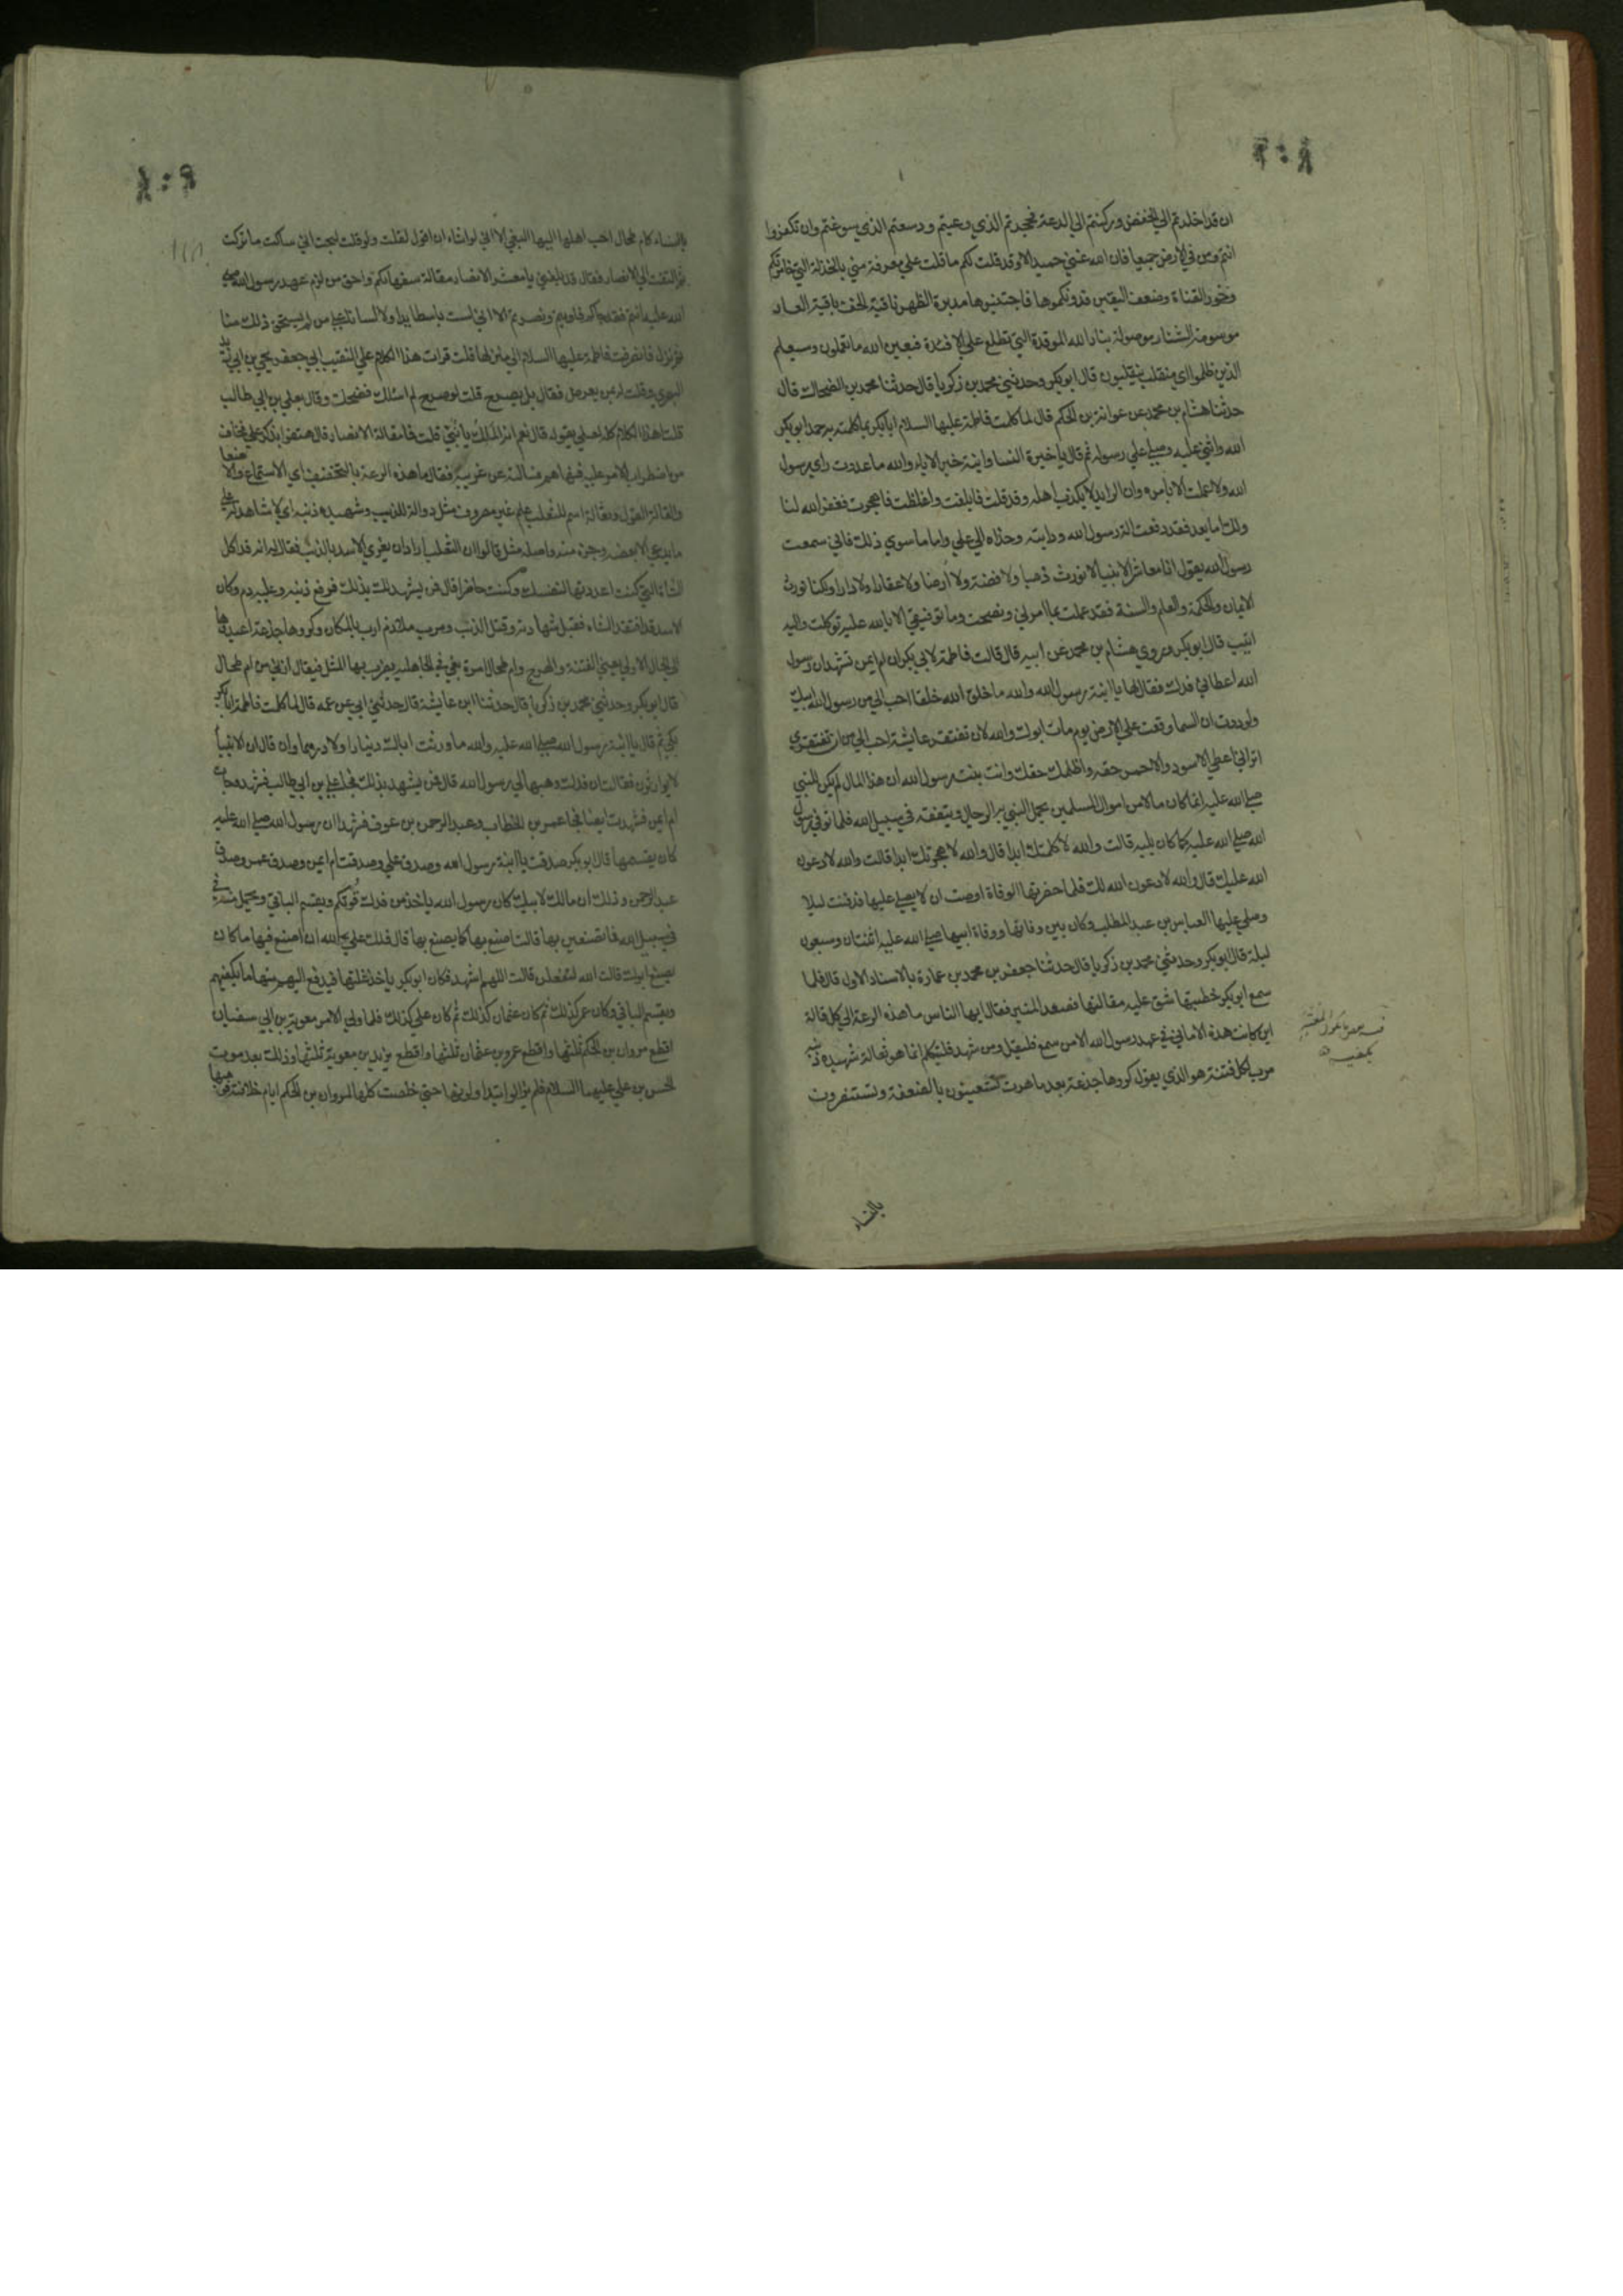 ان قد اخلدتم الي الخفض وركنتم الي الدعة فحجدتم الذي وعيتم ودسعتم الذي سوغتم وان تكفروا
انتم ومن في الارض جميعا فان الله غني حميد الا وقد قلت لكم ما قلت علي معرفة مني بالخذلة التي خامرتكم
وخور القناة وضعف اليقين فدونكموها فاحتقبوها مدبرة الظهر ناقبة الخف باقية العار
موسومة الشنار موصولة بنار الله الموقدة التي تطلع علي الافئدة فبعين الله ما تعملون وسيعلم
الذين ظلموا اي منقلب ينقلبون قال ابو بكر وحدثني محمد بن زكريا قال حدثنا محمد بن الضحاك قال
حدثنا هشام بن محمد عن عوانة بن الحكم قال لما كلمت فاطمة عليها السلام ابا بكر بما كلمته به حمد ابو بكر
الله واثني عليه وصلي علي رسوله ثم قال يا خيرة النسا وابنة خير الاباء والله ما عدوت راي رسول
الله ولا عملت الا بامره وان الرايد لا يكذب اهله وقد قلت فابلغت واغلظت فاهجرت فغفر الله لنا
ولك اما بعد فقد دفعت الة رسول الله ودابته وحذاه الي علي واما ما سوي ذلك فاني سمعت
رسول الله يقول انا معاشر الانبيا لا نورث ذهبا ولا فضة ولا ارضا ولا عقارا ولا دارا ولكنا نورث
الايمان والحكمة والعلم والسنة فقد عملت بما امرني ونصحت وما توفيقي الا بالله عليه توكلت واليه
انيب قال ابو بكر وروي هشام بن محمد عن ابيه قال قالت فاطمة لابي بكر ان ام ايمن تشهد ان رسول
الله اعطاني فدك فقال لها يا ابنة رسول الله والله ما خلق الله خلقا احب الي من رسول الله ابيك
ولوددت ان السما وقعت علي الارض يوم مات ابوك والله لان تفتقر عايشة احب الي من ان تفتقري
اتراني اعطي الاسود والاحمر حقه واظلمك حقك وانت بنت رسول الله ان هذا المال لم يكن للنبي
صلي الله عليه انما كان مالا من اموال المسلمين يحمل النبي به الرجال وينفقه في سبيل الله فلما توفي رسول
الله صلي الله عليه كما كان يليه قالت والله لا كلمتك ابدا قال والله لا هجرتك ابدا قالت والله لادعون
الله عليك قال والله لادعون الله لك فلما حضرتها الوفاة اوصت ان لا يصلي عليها فدفنت ليلا
وصلي عليها العباس بن عبد المطلب وكان بين وفاتها ووفاة ابيها صلي الله عليه اثنتان وسبعون
ليلة قال ابو بكر وحدثني محمد بن زكريا قال حدثنا جعفر بن محمد بن عمارة بالاسناد الاول قال فلما
سمع ابو بكر خطبتها شق عليه مقالتها فصعد المنبر فقال ايها الناس ما هذه الرعة الي كل قالة
اين كانت هذه الاماني في عهد رسول الله الا من سمع فليقل ومن شهد فليتكلم انما هو ثعالة شهيده ذنبه
مرب لكل فتنة هو الذي يقول كروها جذعة بعد ما هرمت تستعينون بالضعفة وتستنفرون
بالنساء
بالنساء كام طحال احب اهلها اليها البغي الا اني لو اشاء ان اقول لقلت ولو قلت لبحت اني ساكت ما تركت
ثم التفت الي الانصار فقال قد بلغني يا معشر الانصار مقالة سفهائكم واحق من لزم عهد رسول الله صلي
الله عليه انتم فقد جاكم فاويتم ونصرتم الا اني لست باسطا يدا ولا لسانا علي من لم يستحق ذلك منا
ثم نزل فانصرفت فاطمة عليها السلام الي منزلها قلت قرات هذا الكلام علي النقيب ابي جعفر يحيي بن ابي زيد
البصري وقلت له بمن يعرض فقال بل يصرح قلت لو صرح لم اسئلك فضحك وقال بعلي بن ابي طالب
قلت هذا الكلام كله لعلي يقوله قال نعم انه الملك يا بني قلت فما مقالة الانصار قال هتفوا بذكر علي فخاف
من اضطراب الامر عليه فنهاهم فسالته عن غريبه فقال ما هذه الرعة بالتخفيف اي الاستماع والاصغا
والقالة القول وثعالة اسم للثعلب علم غير مصروف مثل ذوالة للذيب وشهيده ذنبه اي لا شاهد له علي
ما يدعي الا بعضه وجزء منه واصله مثل قالوا ان الثعلب اراد ان يغري الاسد بالذئب فقال انه قد اكل
الشاة التي كنت اعددتها لنفسك وكنت حاضرا قال فمن يشهد لك بذلك فرفع ذنبه وعليه دم وكان
الاسد قد افتقد الشاه فقبل شهادته وقتل الذئب ومرب ملازم ارب بالمكان وكروها جذعة اعيدوها
الي الحال الاولي يعني الفتنة والهرج وام طحال امراة بغي في الجاهلية يضرب بها المثل فيقال ازني من ام طحال
قال ابو بكر وحدثني محمد بن زكريا قال حدثنا ابن عايشة قال حدثني ابي عن عمه قال لما كلمت فاطمة ابا بكر
بكي ثم قال يا ابنة رسول الله صلي الله عليه والله ما ورثت اباك دينارا ولا درهما وان قال ان الانبيا
لا يورثون فقالت ان فدك وهبها لي رسول الله قال فمن يشهد بذلك فجا علي بن ابي طالب فشهد وجات
ام ايمن فشهدت ايضا فجا عمر بن الخطاب وعبد الرحمن بن عوف فشهدا ان رسول الله صلي الله عليه
كان يقسمها قال ابو بكر صدقت يا ابنة رسول الله وصدق علي وصدقت ام ايمن وصدق عمر وصدق
عبد الرحمن وذلك ان مالك لابيك كان رسول الله ياخذ من فدك قوتكم ويقسم الباقي ويحمل منه في
في سبيل الله فما تصنعين بها قالت اصنع بها كما يصنع بها قال فلك علي الله ان اصنع فيها ما كان
يصنع ابوك قالت الله لتفعلن قالت اللهم اشهد فكان ابو بكر ياخذ غلتها فيدفع اليهم منها ما يكفيهم
ويقسم الباقي وكان عمر كذلك ثم كان عثمان كذلك ثم كان علي كذلك فلما ولي الامر معوية بن ابي سفيان
اقطع مروان بن الحكم ثلثها واقطع عمرو بن عثمان ثلثها واقطع يزيد بن معوية ثلثها وذلك بعد موت
الحسن بن علي عليهما السلام فلم يزالوا يتداولونها حتي خلصت كلها لمروان بن الحكم ايام خلافته فوهبها